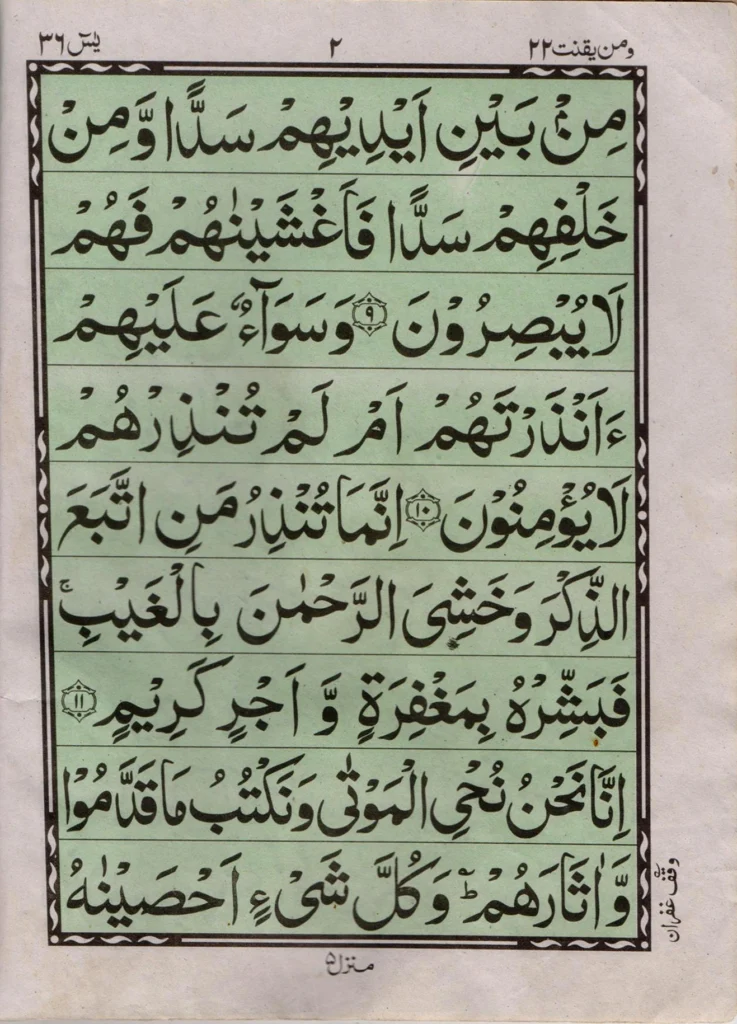 ومن یقنت ۲۲
۲
یٰسٓ ۳۶
مِنْۢ بَیْنِ اَیْدِیْهِمْ سَدًّا وَّمِنْ
خَلْفِهِمْ سَدًّا فَاَغْشَیْنٰهُمْ فَهُمْ
لَا یُبْصِرُوْنَ ۹ وَسَوَآءٌ عَلَیْهِمْ
ءَاَنْذَرْتَهُمْ اَمْ لَمْ تُنْذِرْهُمْ
لَا یُؤْمِنُوْنَ ۱۰ اِنَّمَا تُنْذِرُ مَنِ اتَّبَعَ
الذِّكْرَ وَخَشِیَ الرَّحْمٰنَ بِالْغَیْبِ ۚ
فَبَشِّرْهُ بِمَغْفِرَةٍ وَّ اَجْرٍ كَرِیْمٍ ۱۱
اِنَّا نَحْنُ نُحْیِ الْمَوْتٰی وَنَكْتُبُ مَا قَدَّمُوْا
وَاٰثَارَهُمْ ؕ وَكُلَّ شَیْءٍ اَحْصَیْنٰهُ
وقف غفران
منزل ۵